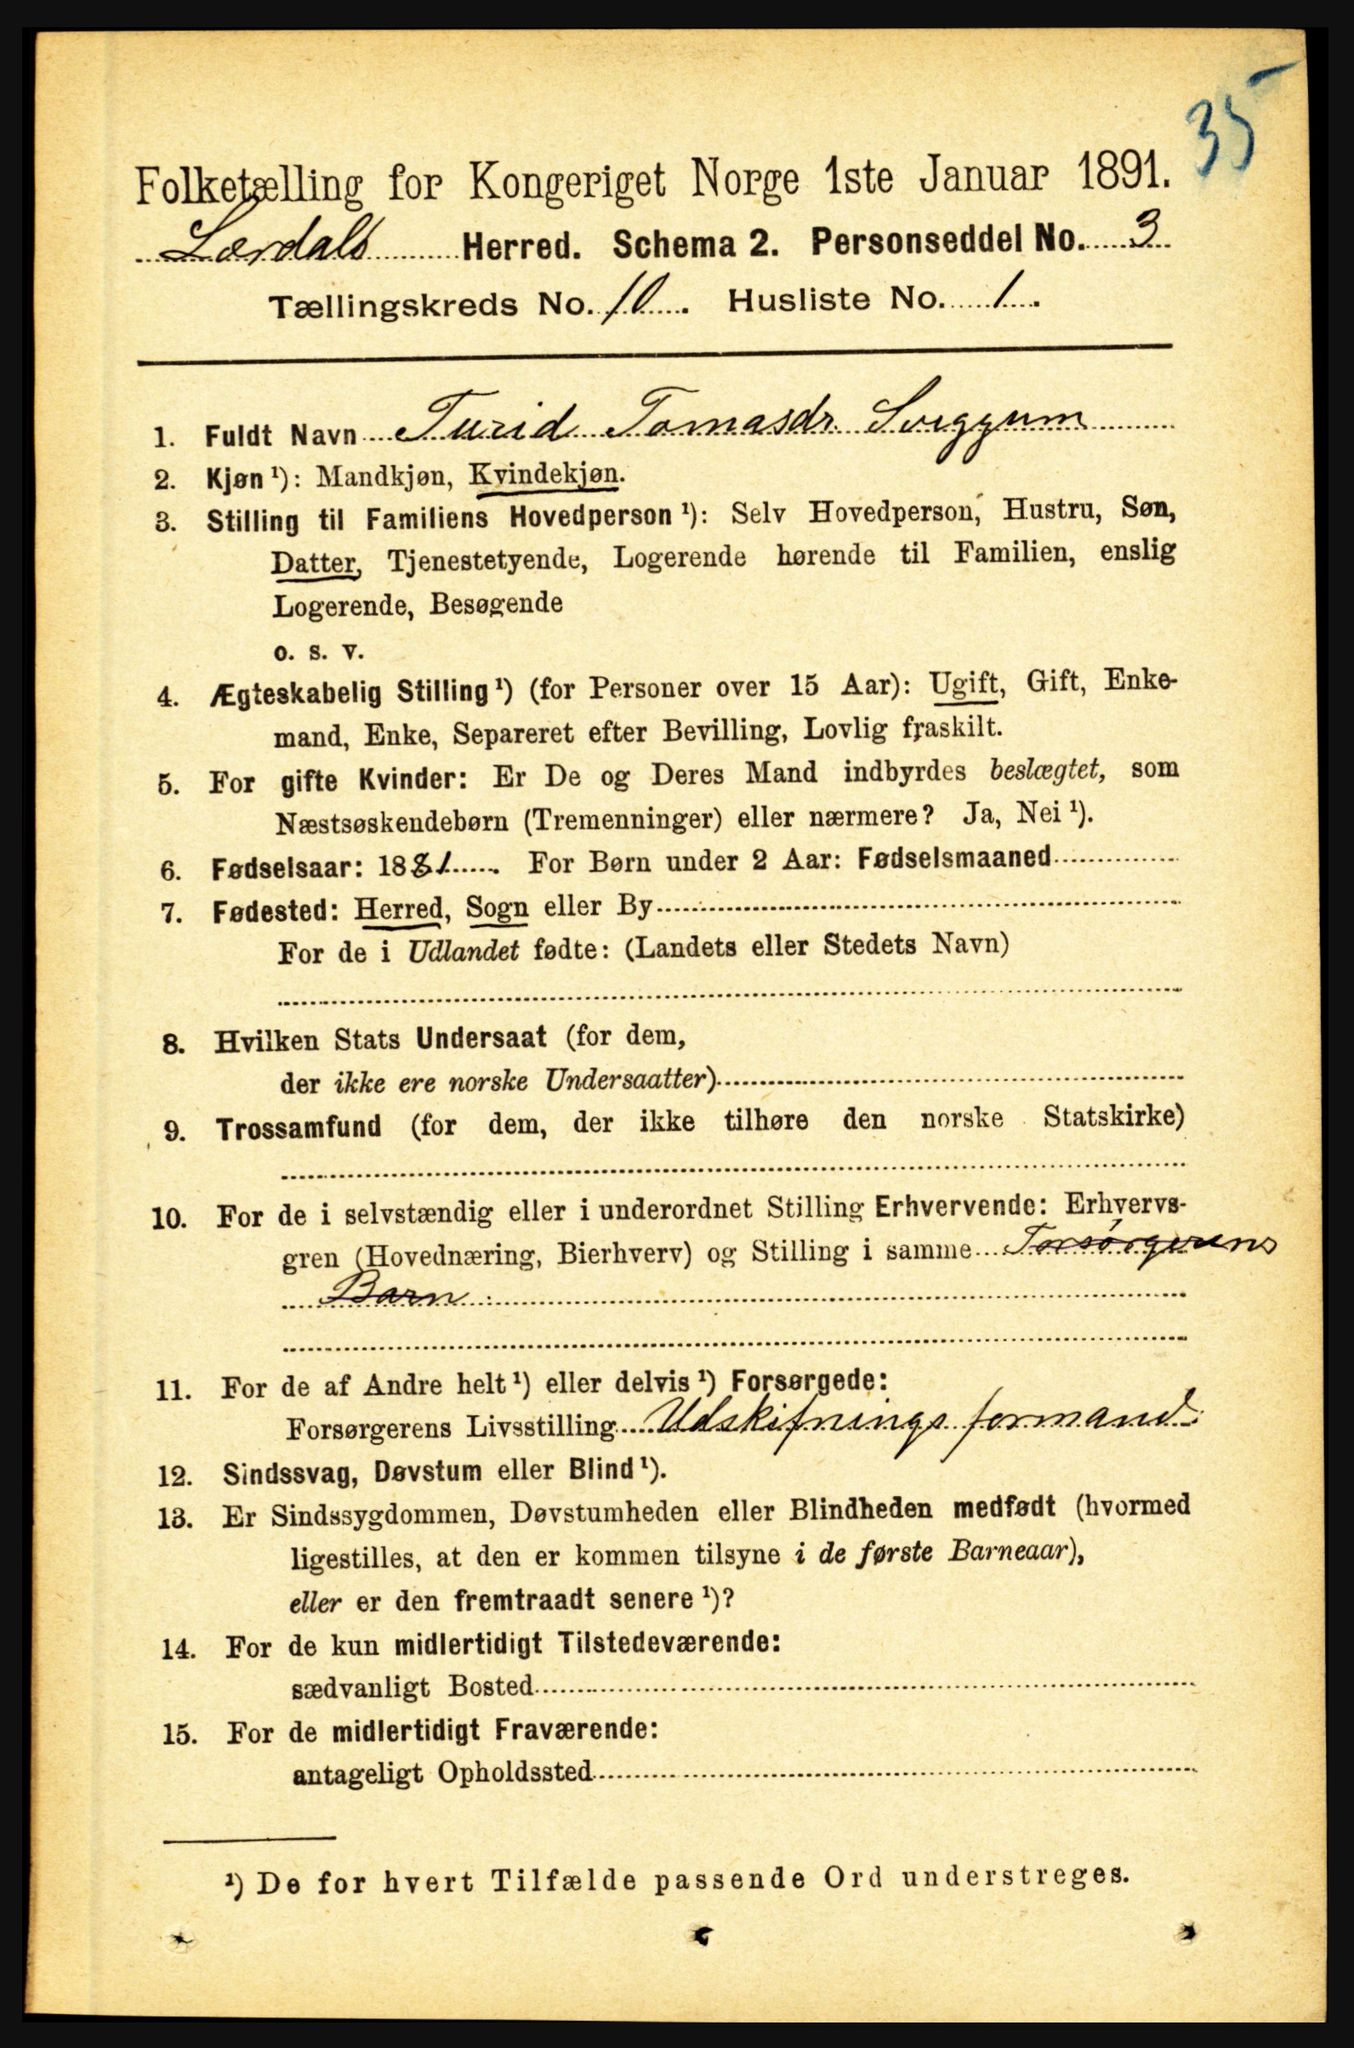 35
Folketælling for Kongeriget Norge 1ste Januar 1891.
Lærdals Herred. Schema 2. Personseddel No. 3
Tællingskreds No. 10. Husliste No. 1.
1. Fuldt Navn Turid Tomasdr. Sviggum
2. Kjøn ¹): Mandkjøn, Kvindekjøn.
3. Stilling til Familiens Hovedperson ¹): Selv Hovedperson, Hustru, Søn,
Datter, Tjenestetyende, Logerende hørende til Familien, enslig
Logerende, Besøgende
o. s. v.
4. Ægteskabelig Stilling ¹) (for Personer over 15 Aar): Ugift, Gift, Enke-
mand, Enke, Separeret efter Bevilling, Lovlig fraskilt.
5. For gifte Kvinder: Er De og Deres Mand indbyrdes beslægtet, som
Næstsøskendebørn (Tremenninger) eller nærmere? Ja, Nei ¹).
6. Fødselsaar: 1881. For Børn under 2 Aar: Fødselsmaaned
7. Fødested: Herred, Sogn eller By
For de i Udlandet fødte: (Landets eller Stedets Navn)
8. Hvilken Stats Undersaat (for dem,
der ikke ere norske Undersaatter)
9. Trossamfund (for dem, der ikke tilhøre den norske Statskirke)
10. For de i selvstændig eller i underordnet Stilling Erhvervende: Erhvervs-
gren (Hovednæring, Bierhverv) og Stilling i samme Forsørgerens
Barn
11. For de af Andre helt ¹) eller delvis ¹) Forsørgede:
Forsørgerens Livsstilling Udskiftnings formand
12. Sindssvag, Døvstum eller Blind ¹).
13. Er Sindssygdommen, Døvstumheden eller Blindheden medfødt (hvormed
ligestilles, at den er kommen tilsyne i de første Barneaar),
eller er den fremtraadt senere ¹)?
14. For de kun midlertidigt Tilstedeværende:
sædvanligt Bosted
15. For de midlertidigt Fraværende:
antageligt Opholdssted
¹) De for hvert Tilfælde passende Ord understreges.